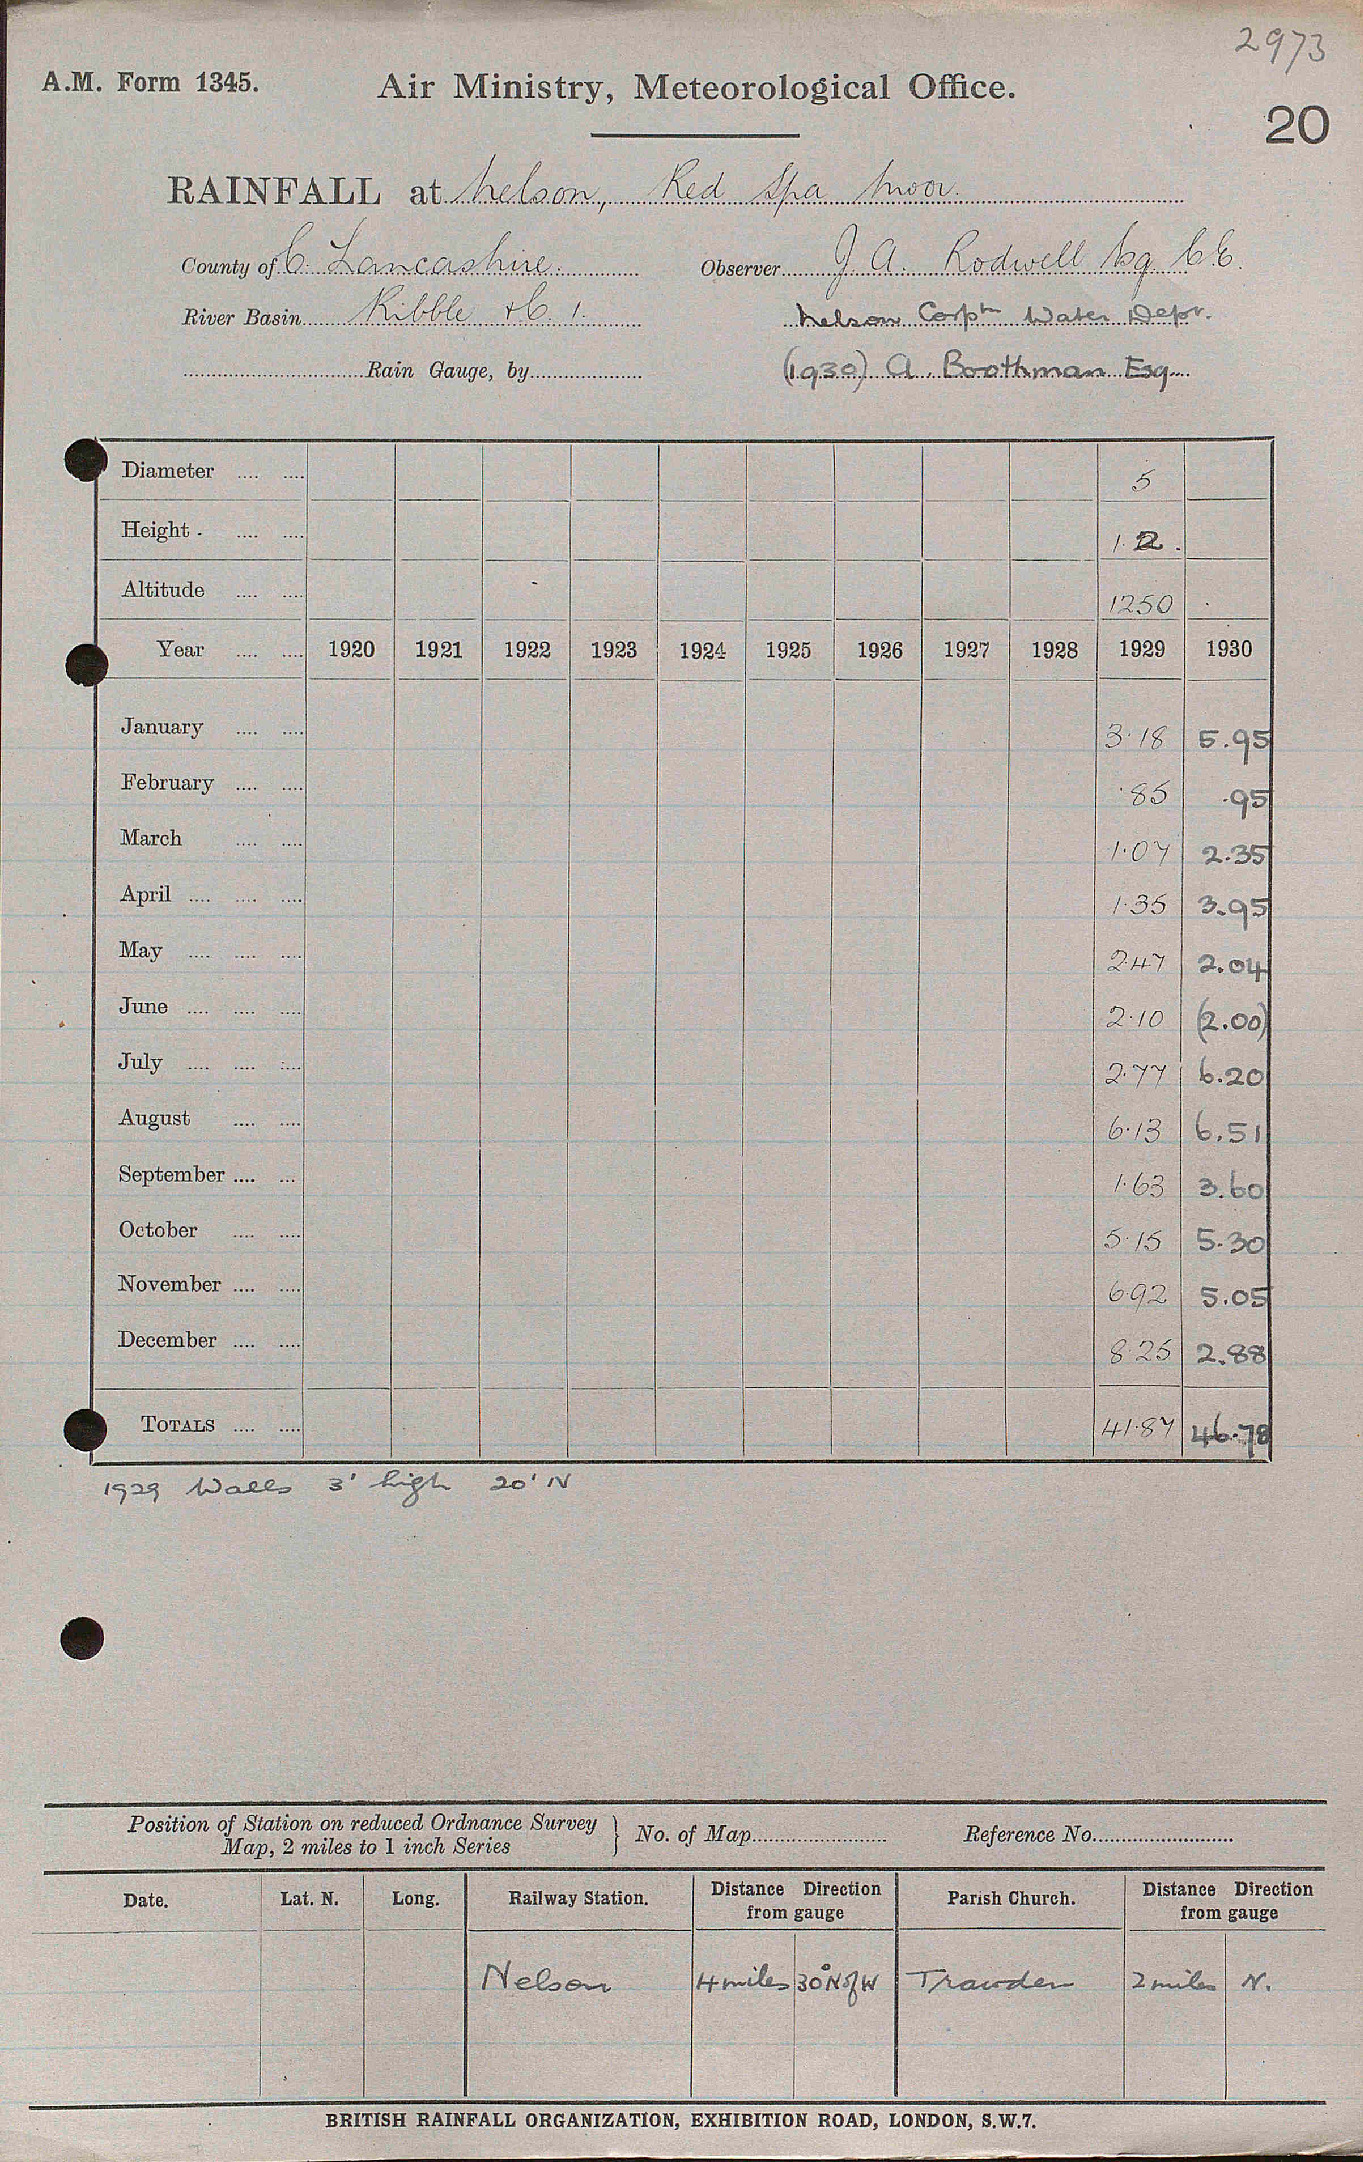 2973
A.M. Form 1345. Air Ministry, Meteorological Office.
20
RAINFALL at Nelson, Red Spa Moor.
County of C. Lancashire. Observer J A. Rodwell Esq C.E.
River Basin Ribble &C. 1. Nelson Corptn Water Dept.
Rain Gauge, by (1930) A. Boothman Esq
Diameter 5
Height 1. 2.
Altitude 1250
Year 1920 1921 1922 1923 1924 1925 1926 1927 1928 1929 1930
January 3.18 5.95
February .85 .95
March 1.07 2.35
April 1.35 3.95
May 2.47 2.04
June 2.10 (2.00)
July 2.77 6.20
August 6.13 6.51
September 1.63 3.60
October 5.15 5.30
November 6.92 5.05
December 8.25 2.88
TOTALS 41.87 46.78
1929 Walls 3' high 20' N
Position of Station on reduced Ordnance Survey Map, 2 miles to 1 inch Series } No. of Map Reference No.
Date. Lat. N. Long. Railway Station. Distance Direction from gauge Parish Church. Distance Direction from gauge
Nelson 4 miles 30° N of W Trawden 2 miles N.
BRITISH RAINFALL ORGANIZATION, EXHIBITION ROAD, LONDON, S.W.7.